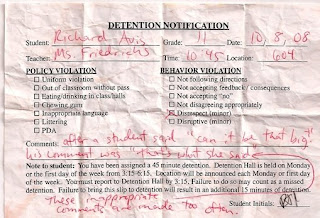 DETENTION NOTIFICATION
Student: Richard Avis Grade: 11 Date: 10, 8, 08
Teacher: Ms. Friedrichs Time: 10:45 Location: G04
POLICY VIOLATION BEHAVIOR VIOLATION
☐ Uniform violation ☐ Not following directions
☐ Out of classroom without pass ☐ Not accepting feedback/ consequences
☐ Eating/drinking in class/halls ☐ Not accepting "no"
☐ Chewing gum ☐ Not disagreeing appropriately
☐ Inappropriate language ☒ Disrespect (minor)
☐ Littering ☐ Disruptive (minor)
☐ PDA
Comments: after a student said "can't be that big"
his comment was "that's what she said"
Note to student: You have been assigned a 45 minute detention. Detention Hall is held on Monday
or the first day of the week from 3:15-6:15. Location will be announced each Monday or first
day of the week. You must report to Detention Hall by 3:15. Failure to do so may count as a missed
detention. Failure to bring this slip to detention will result in an additional 15 minutes of detention.
These inappropriate Student Initials:
comments are made too often.